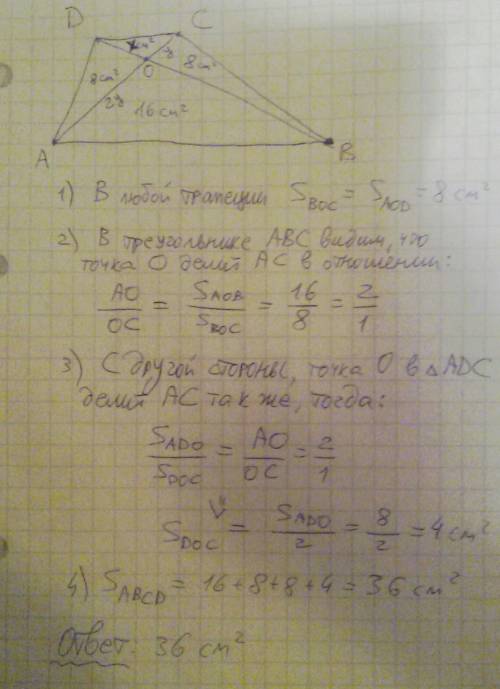 D C
x см²
8 см² O y 8 см²
2y
16 см²
A B
1) В любой трапеции S_BOC = S_AOD = 8 см²
2) В треугольнике ABC видим, что
точка O делит AC в отношении:
AO/OC = S_AOB/S_BOC = 16/8 = 2/1
3) С другой стороны, точка O в △ADC
делит AC так же, тогда:
S_ADO/S_DOC = AO/OC = 2/1
⇓
S_DOC = S_ADO/2 = 8/2 = 4 см²
4) S_ABCD = 16+8+8+4 = 36 см²
Ответ: 36 см²